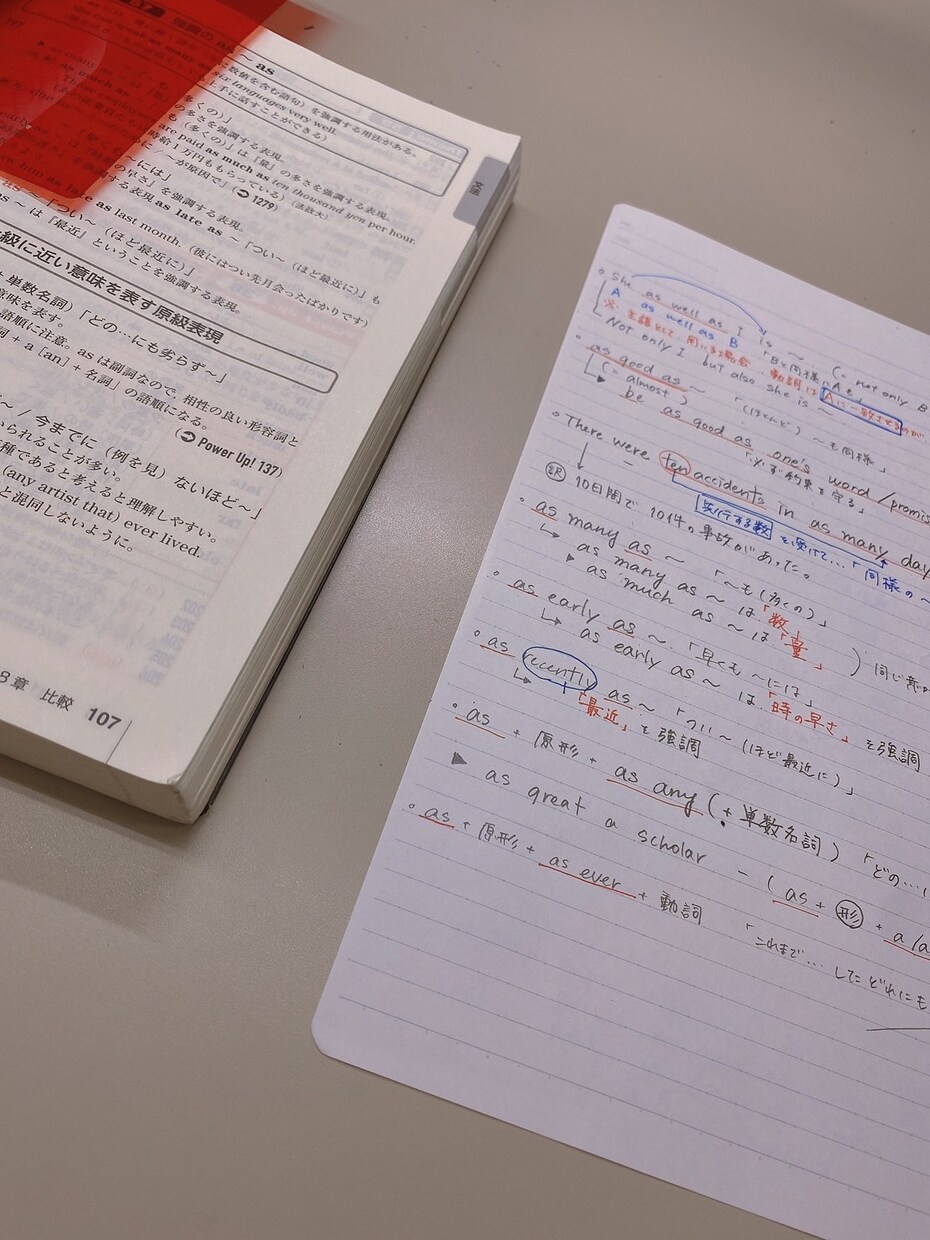 強調の as ~ as
数値を含む語句）を強調する用法がある。
six languages very well.
上手に話すことができる）
多くの）」
も（多くの）」は「量」の多さを強調する表現。
are paid as much as ten thousand yen per hour.
時給1万円ももらっている）（法政大）
~が原因で」（➲ 1279）
~には」
の早さ」を強調する表現。
強調する表現 as late as ~「つい~（ほど最近に）」も
him as late as last month.（彼にはつい先月会ったばかりです）
as ~「つい~（ほど最近に）」
as ~ は「最近」ということを強調する表現。
級に近い意味を表す原級表現
単数名詞）「どの…にも劣らず~」
意味を表す。
語順に注意。as は副詞なので、相性の良い形容詞と
詞 + a [an] + 名詞」の語順になる。
（➲ Power Up! 137）
~ / 今までに（例を見）ないほど~」
いられることが多い。
種であると考えると理解しやすい。
(any artist that) ever lived.
と混同しないように。
8章 比較 107
文法
She as well as I is ~
A as well as B 「Bと同様にAも」 (= not only B
※主語として用いる場合、動詞はAに一致させる
Not only I but also she is ~
as good as ~ 「(ほとんど) ~も同様」
(= almost)
be as good as one's word / promis
「必ず約束を守る」
There were ten accidents in as many day
先行する数を受けて…「同様の~
訳 10日間で10件の事故があった。
as many as ~ 「~も(多くの)」
as many as ~ は「数」
as much as ~ は「量」 ) 同じ意
as early as ~ 「早くも~には」
as early as ~ は「時の早さ」を強調
as recently as ~ 「つい~(ほど最近に)」
「最近」を強調
as + 原形 + as any (+ 単数名詞) 「どの…
as great a scholar - (as + 形 + a /a
as + 原形 + as ever + 動詞
「これまで…したどれにも